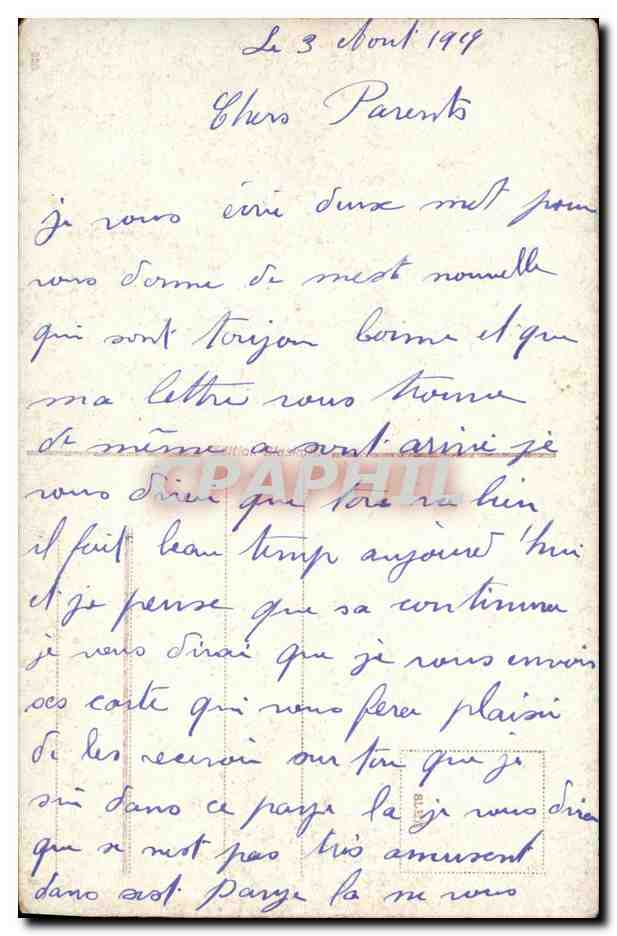 Le 3 Aout 1919
Chers Parents
je vous écrie deux mot pour
vous donne de mest nouvelle
qui sont toujour bonne et que
ma lettre vous trouve
de même a sont arivé je
vous dirai que tout va bien
il fait beau temp aujourd'hui
et je pense que sa continura
je vous dirai que je vous envois
ses carte qui vous fera plaisir
de les recevoir sur tou que je
sui dans ce paye la je vous dirai
que se nest pas très amusent
dans sest paye la ne vous
CPAPHIL